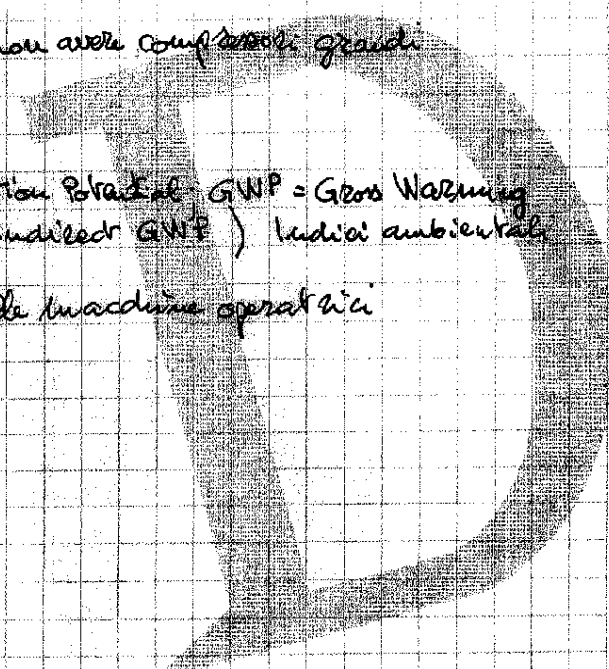 non avere compressori grandi
tion Potential GWP = Gross Warming
indirect GWP ) Indici ambientali
le macchine operatrici